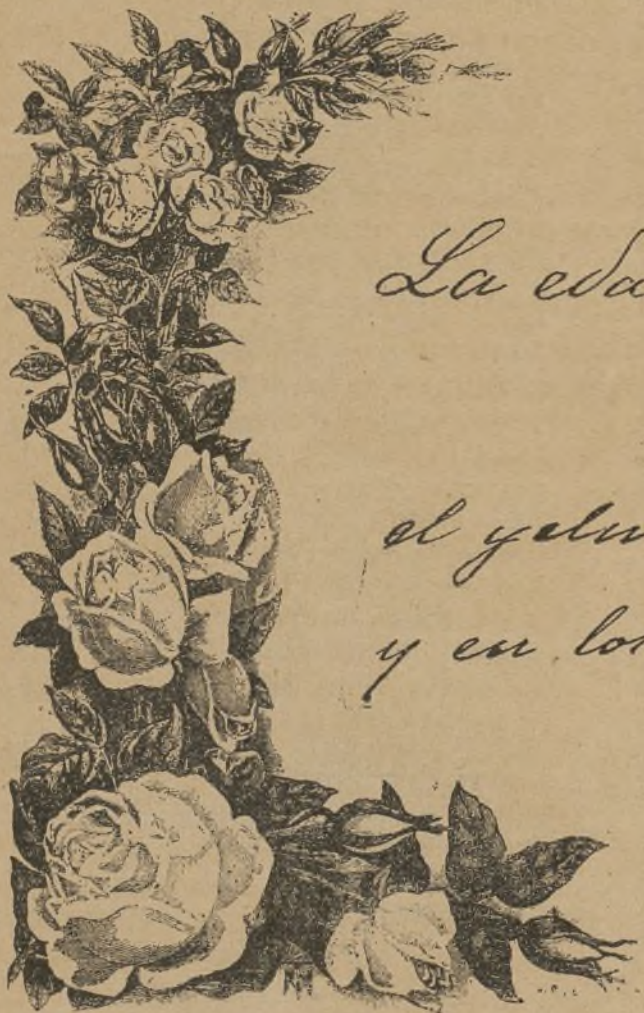 La eda
el yelm
y en los